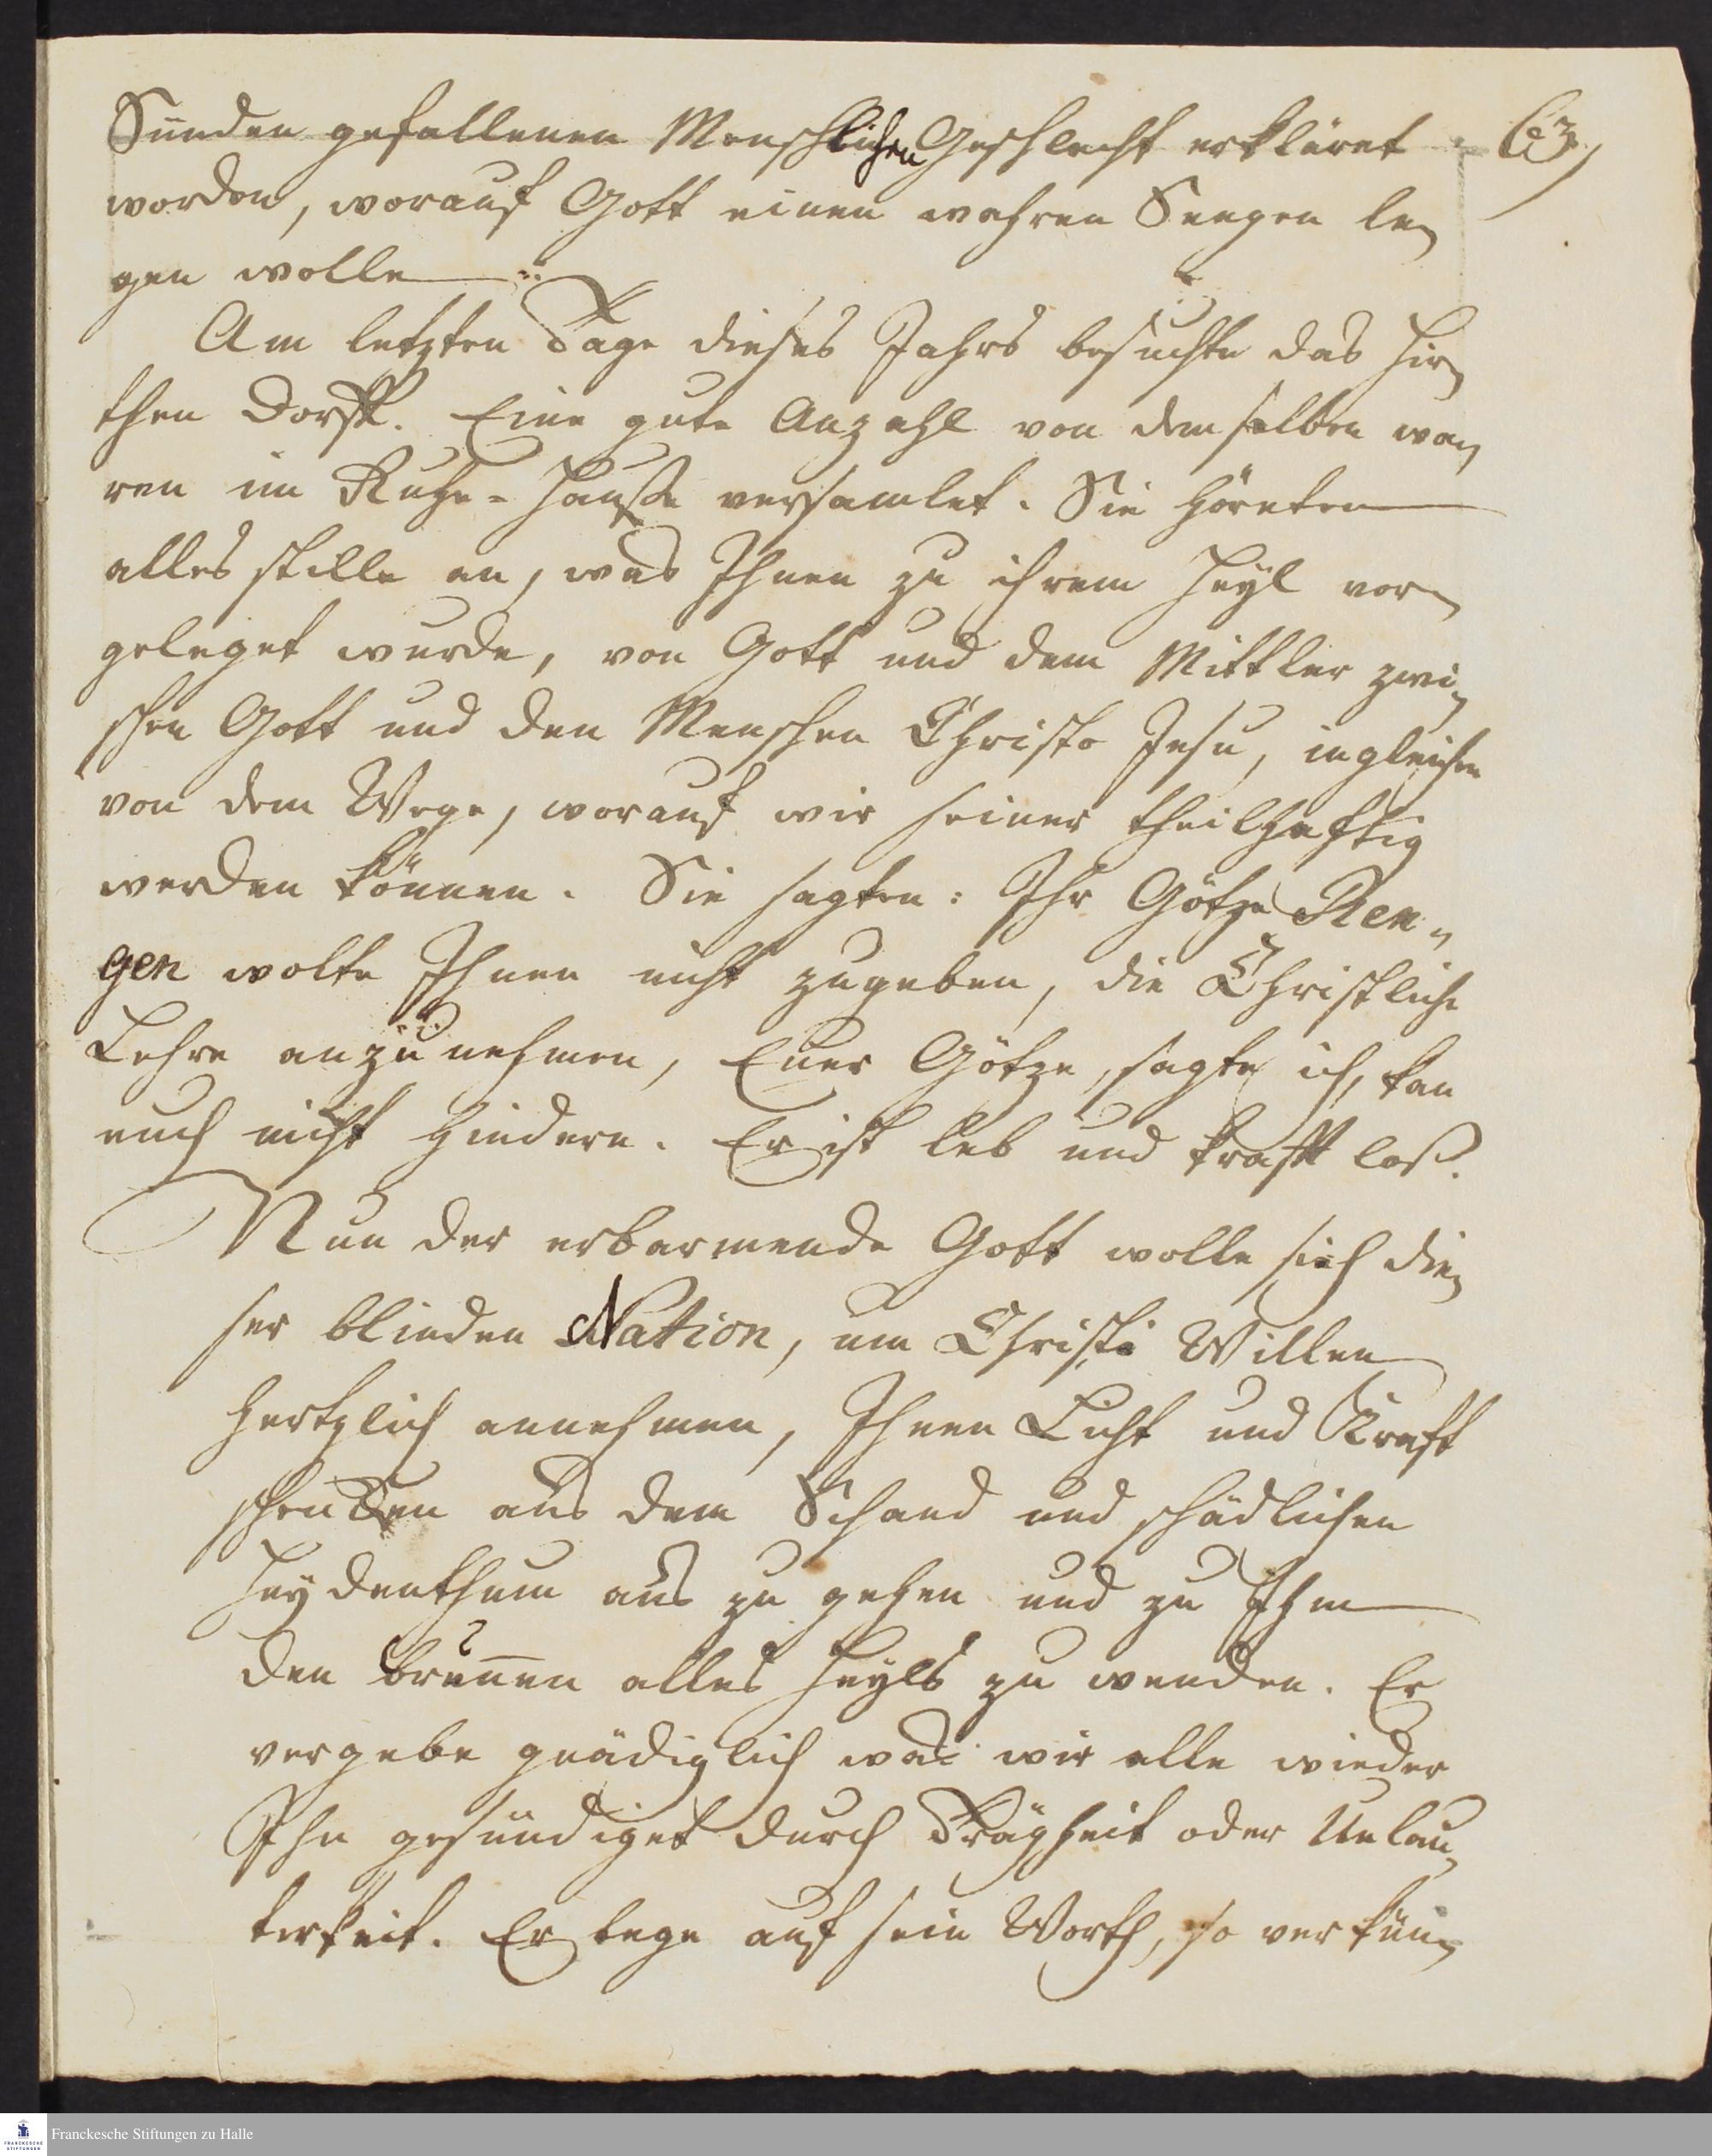 Sünden gefallenen Menschlichen Geschlecht erkläret
worden, worauf Gott einen wahren Seegen le-
gen wolle
Am letzten Tage dieses Jahrs besuchte das Hir-
then Dorff. Eine gute Anzahl von demselben wa-
ren im Ruhe-Hauße versamlet. Sie höreten
alles stille an, was Ihnen zu ihrem Heyl vor-
geleget wurde, von Gott und dem Mittler zwi-
schen Gott und den Menschen Christo Jesu, ingleichen
von dem Wege, worauf wir seiner theilhafftig
werden können. Sie sagten: Ihr Götze Ren-
gen wolte Ihnen nicht zugeben, die Christliche
Lehre anzunehmen, Euer Götze, sagte ich, kan
euch nicht hindern. Er ist leb und krafft loß.
Nun der erbarmende Gott wolle sich die-
ser blinden Nation, um Christi Willen
hertzlich annehmen, Ihnen Licht und Krafft
schencken aus dem Schand und schädlichen
Heydenthum aus zu gehen und zu Ihm
den brunnen alles Heyls zu wenden. Er
vergebe gnädiglich was wir alle wieder
Ihn gesündiget durch Trägheit oder Unlau-
terkeit. Er lege auf sein Worth, so verkün-
Franckesche Stiftungen zu Halle